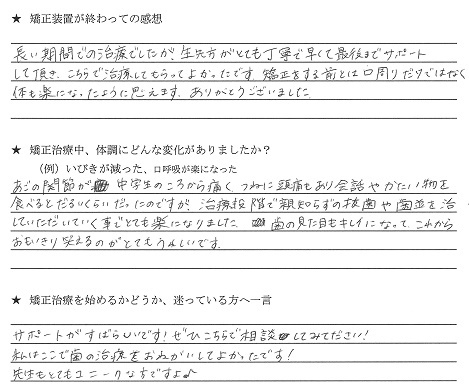 ★ 矯正装置が終わっての感想
長い期間での治療でしたが、先生方がとても丁寧で早くて最後までサポート
して頂き、こちらで治療してもらってよかったです。矯正をする前とは口周りだけではなく
体も楽になったように思えます。ありがとうございました
★ 矯正治療中、体調にどんな変化がありましたか？
（例）いびきが減った、口呼吸が楽になった
あごの関節が 中学生のころから痛く、つねに頭痛もあり会話やかたい物を
食べるとだるいくらいだったのですが、治療段階で親知らずの抜歯や歯並を治
していただいていく事でとても楽になりました 歯の見た目もキレイになって、これから
おもいきり笑えるのがとてもうれしいです。
★ 矯正治療を始めるかどうか、迷っている方へ一言
サポートがすばらしいです！ぜひこちらで相談 してみてださい！
私はここで歯の治療をおねがいしてよかったです！
先生もとてもユニークな方ですよ♪